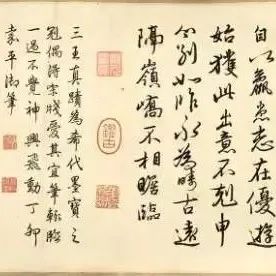 自以羸患志在優遊
始獲此出意不剋申
分別如昨永為疇古遠
隔嶺嶠不相瞻臨
三王真蹟為希代墨寶之
冠偶得宋牋愛其宜筆輒臨
一過不覺神興飛動丁卯
嘉平御筆